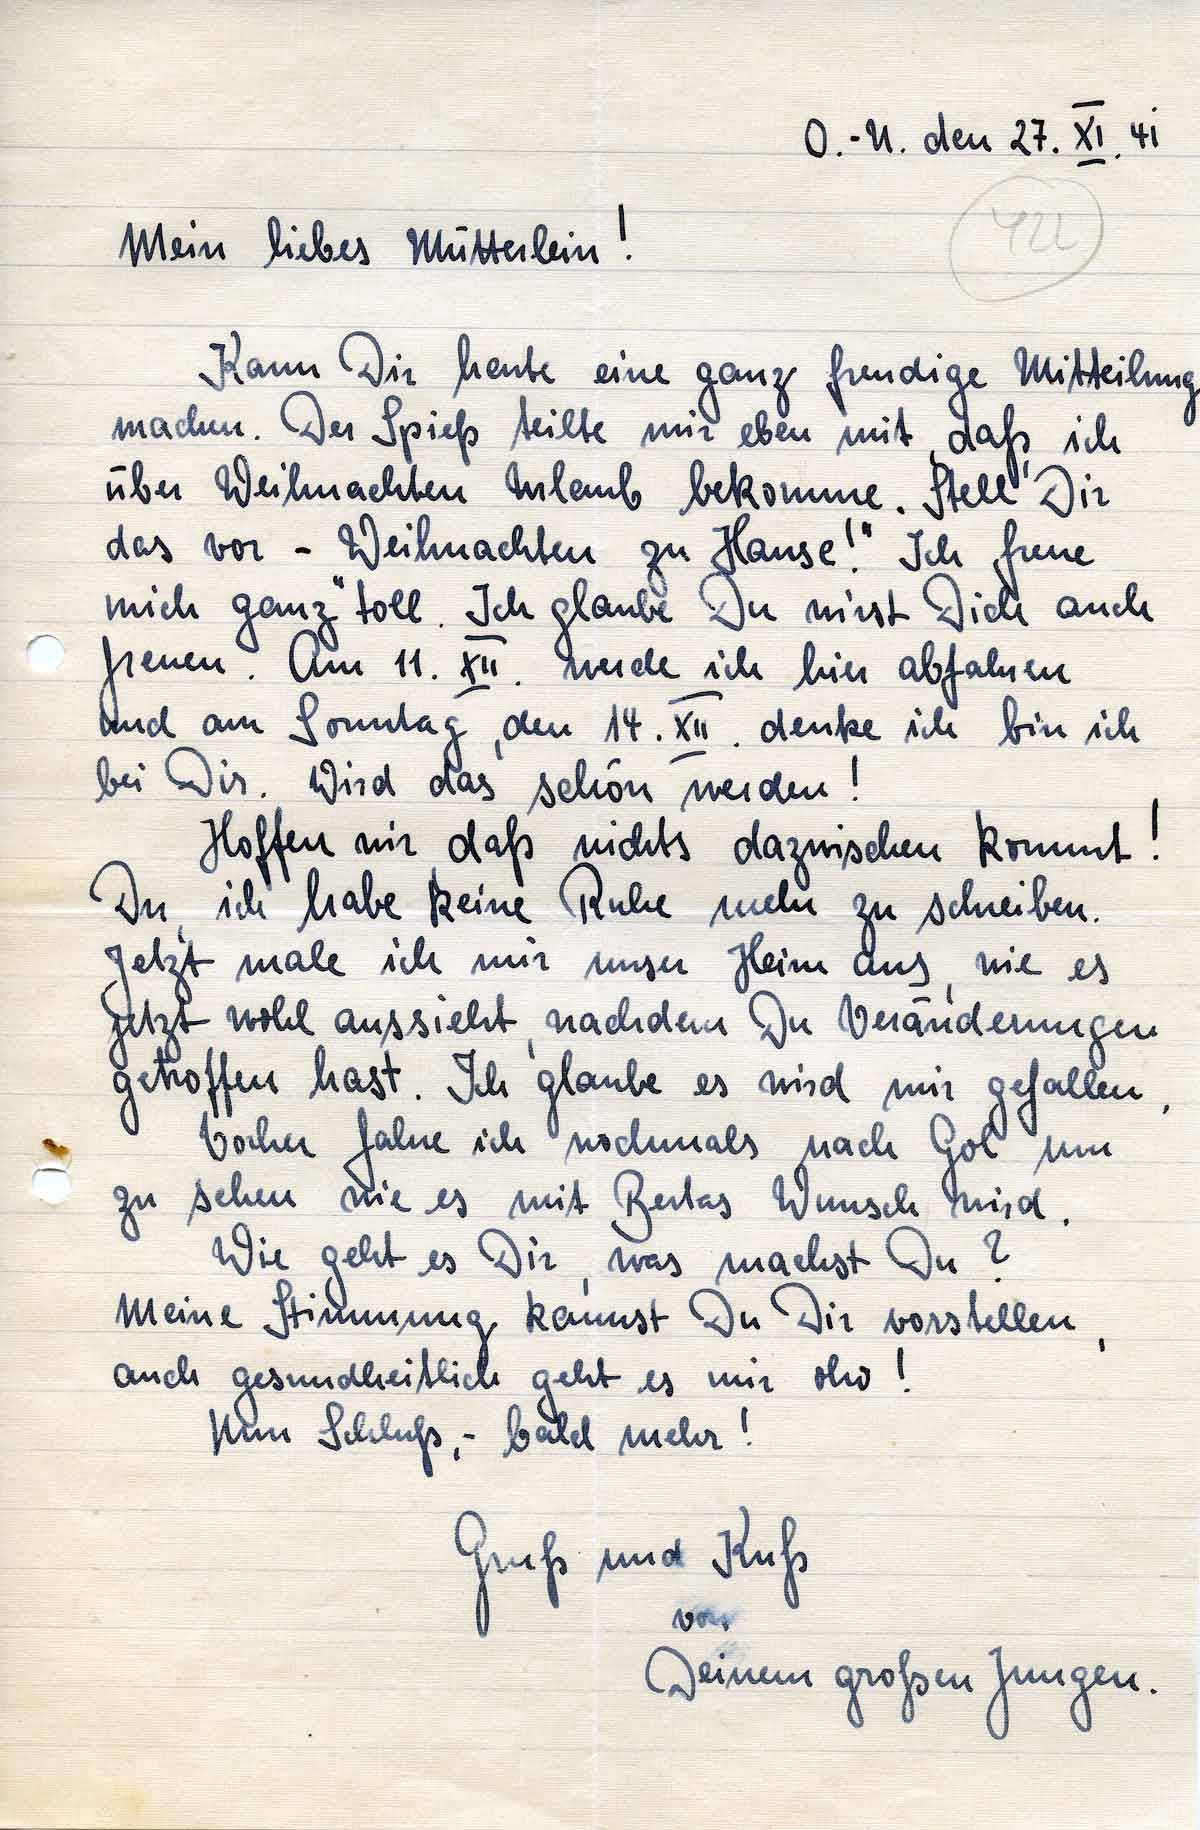 O.-U. den 27. XI. 41
422
Mein liebes Mütterlein!
Kann Dir heute eine ganz freudige Mitteilung
machen. Der Spieß teilte mir eben mit, daß ich
über Weihnachten Urlaub bekomme. Stell' Dir
das vor - "Weihnachten zu Hause!" Ich freue
mich ganz toll. Ich glaube Du wirst Dich auch
freuen. Am 11. XII. werde ich hier abfahren
und am Sonntag, den 14. XII. denke ich bin ich
bei Dir. Wird das schön werden!
Hoffen wir daß nichts dazwischen kommt!
Du, ich habe keine Ruhe mehr zu schreiben.
Jetzt male ich mir unser Heim aus, wie es
jetzt wohl aussieht, nachdem Du Veränderungen
getroffen hast. Ich glaube es wird mir gefallen.
Vorher fahre ich nochmals nach Gol um
zu sehen wie es mit Bertas Wunsch wird.
Wie geht es Dir, was machst Du?
Meine Stimmung kannst Du Dir vorstellen,
auch gesundheitlich geht es mir oho!
Nun Schluß,- bald mehr!
Gruß und Kuß
von
Deinem großen Jungen.